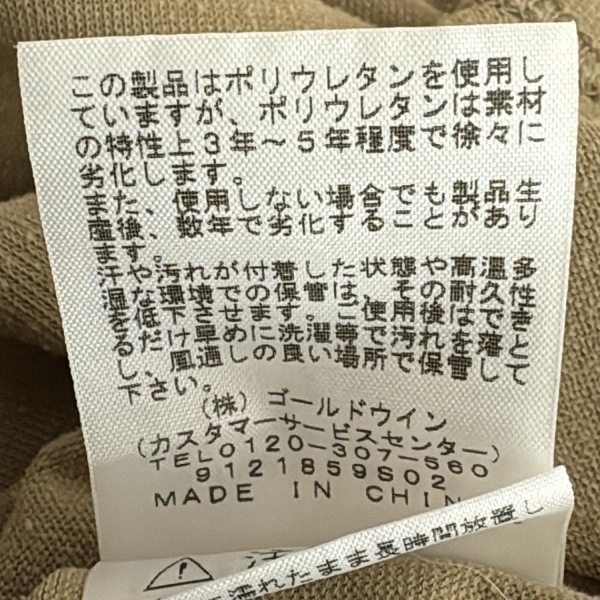 この製品はポリウレタンを使用し
ていますが、ポリウレタンは素材
の特性上3年〜5年程度で徐々に
劣化します。
また、使用しない場合でも製品生
産後、数年で劣化することがあり
ます。
汗や汚れが付着した状態や高温多
湿な環境での保管は、その耐久性
を低下させます。ご使用後はできる
だけ早めに洗濯等で汚れを落と
し、風通しの良い場所で保管して
下さい。
(株) ゴールドウイン
(カスタマーサービスセンター)
TEL0120-307-560
9121859S02
MADE IN CHIN
注
濡れたまま長時間放置し